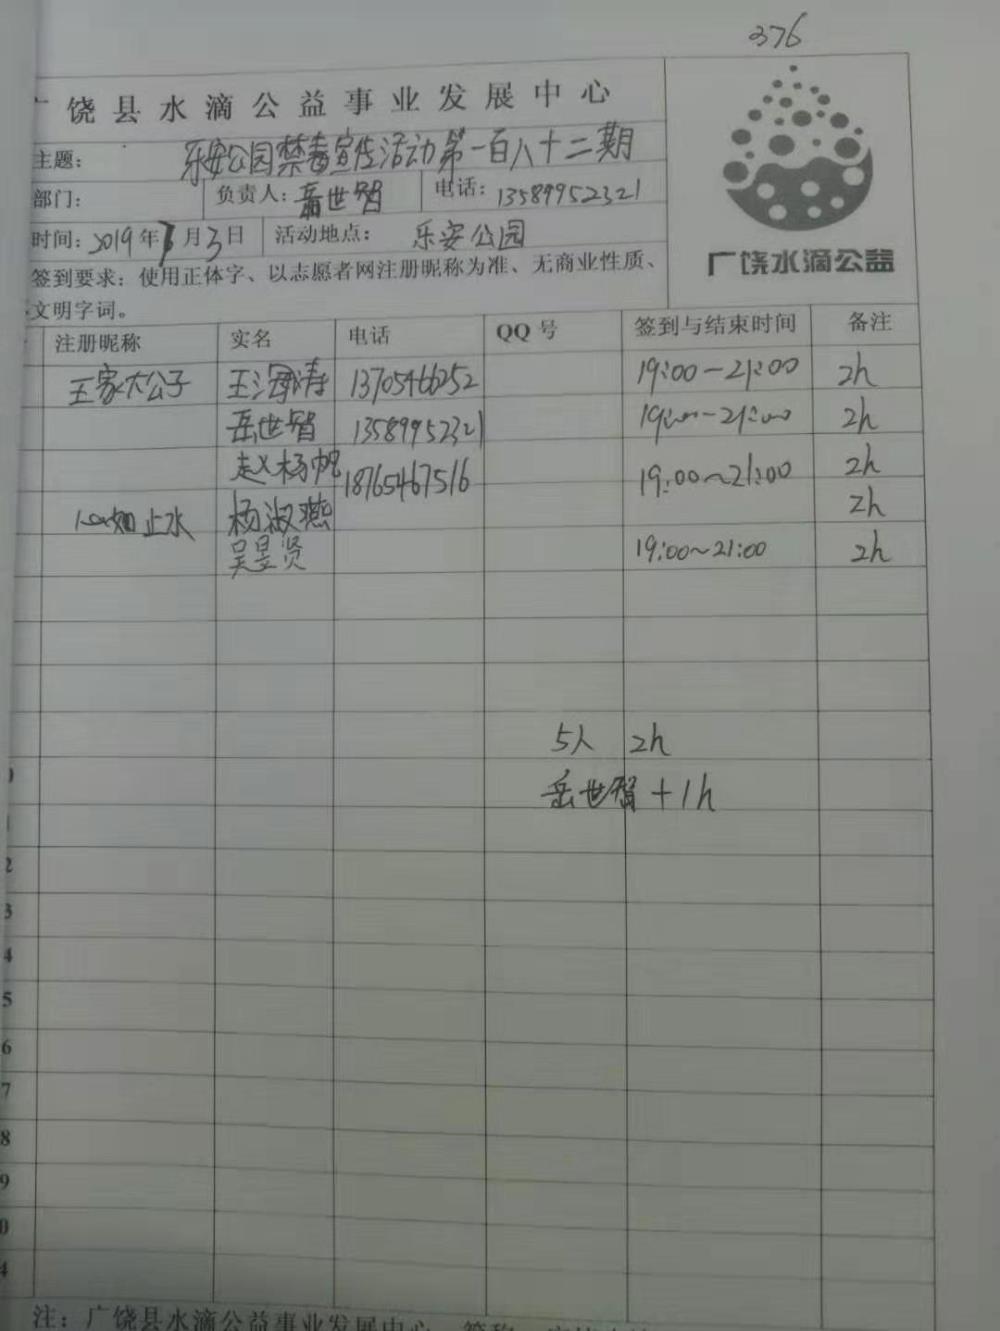 376
广饶县水滴公益事业发展中心
主题: 乐安公园禁毒宣传活动第一百八十二期
部门: 负责人: 岳世智 电话: 13589952321
时间: 2019年7月3日 活动地点: 乐安公园
广饶水滴公益
签到要求：使用正体字、以志愿者网注册昵称为准、无商业性质、
文明字词。
注册昵称 实名 电话 QQ号 签到与结束时间 备注
王家大公子 王海涛 13705466252 19:00-21:00 2h
岳世智 13589952321 19:00-21:00 2h
赵杨帆 18765467516 19:00~21:00 2h
如止水 杨淑燕 2h
吴昱贤 19:00~21:00 2h
5人 2h
岳世智+1h
2
3
4
5
6
7
8
9
0
4
注：广饶县水滴公益事业发展中心